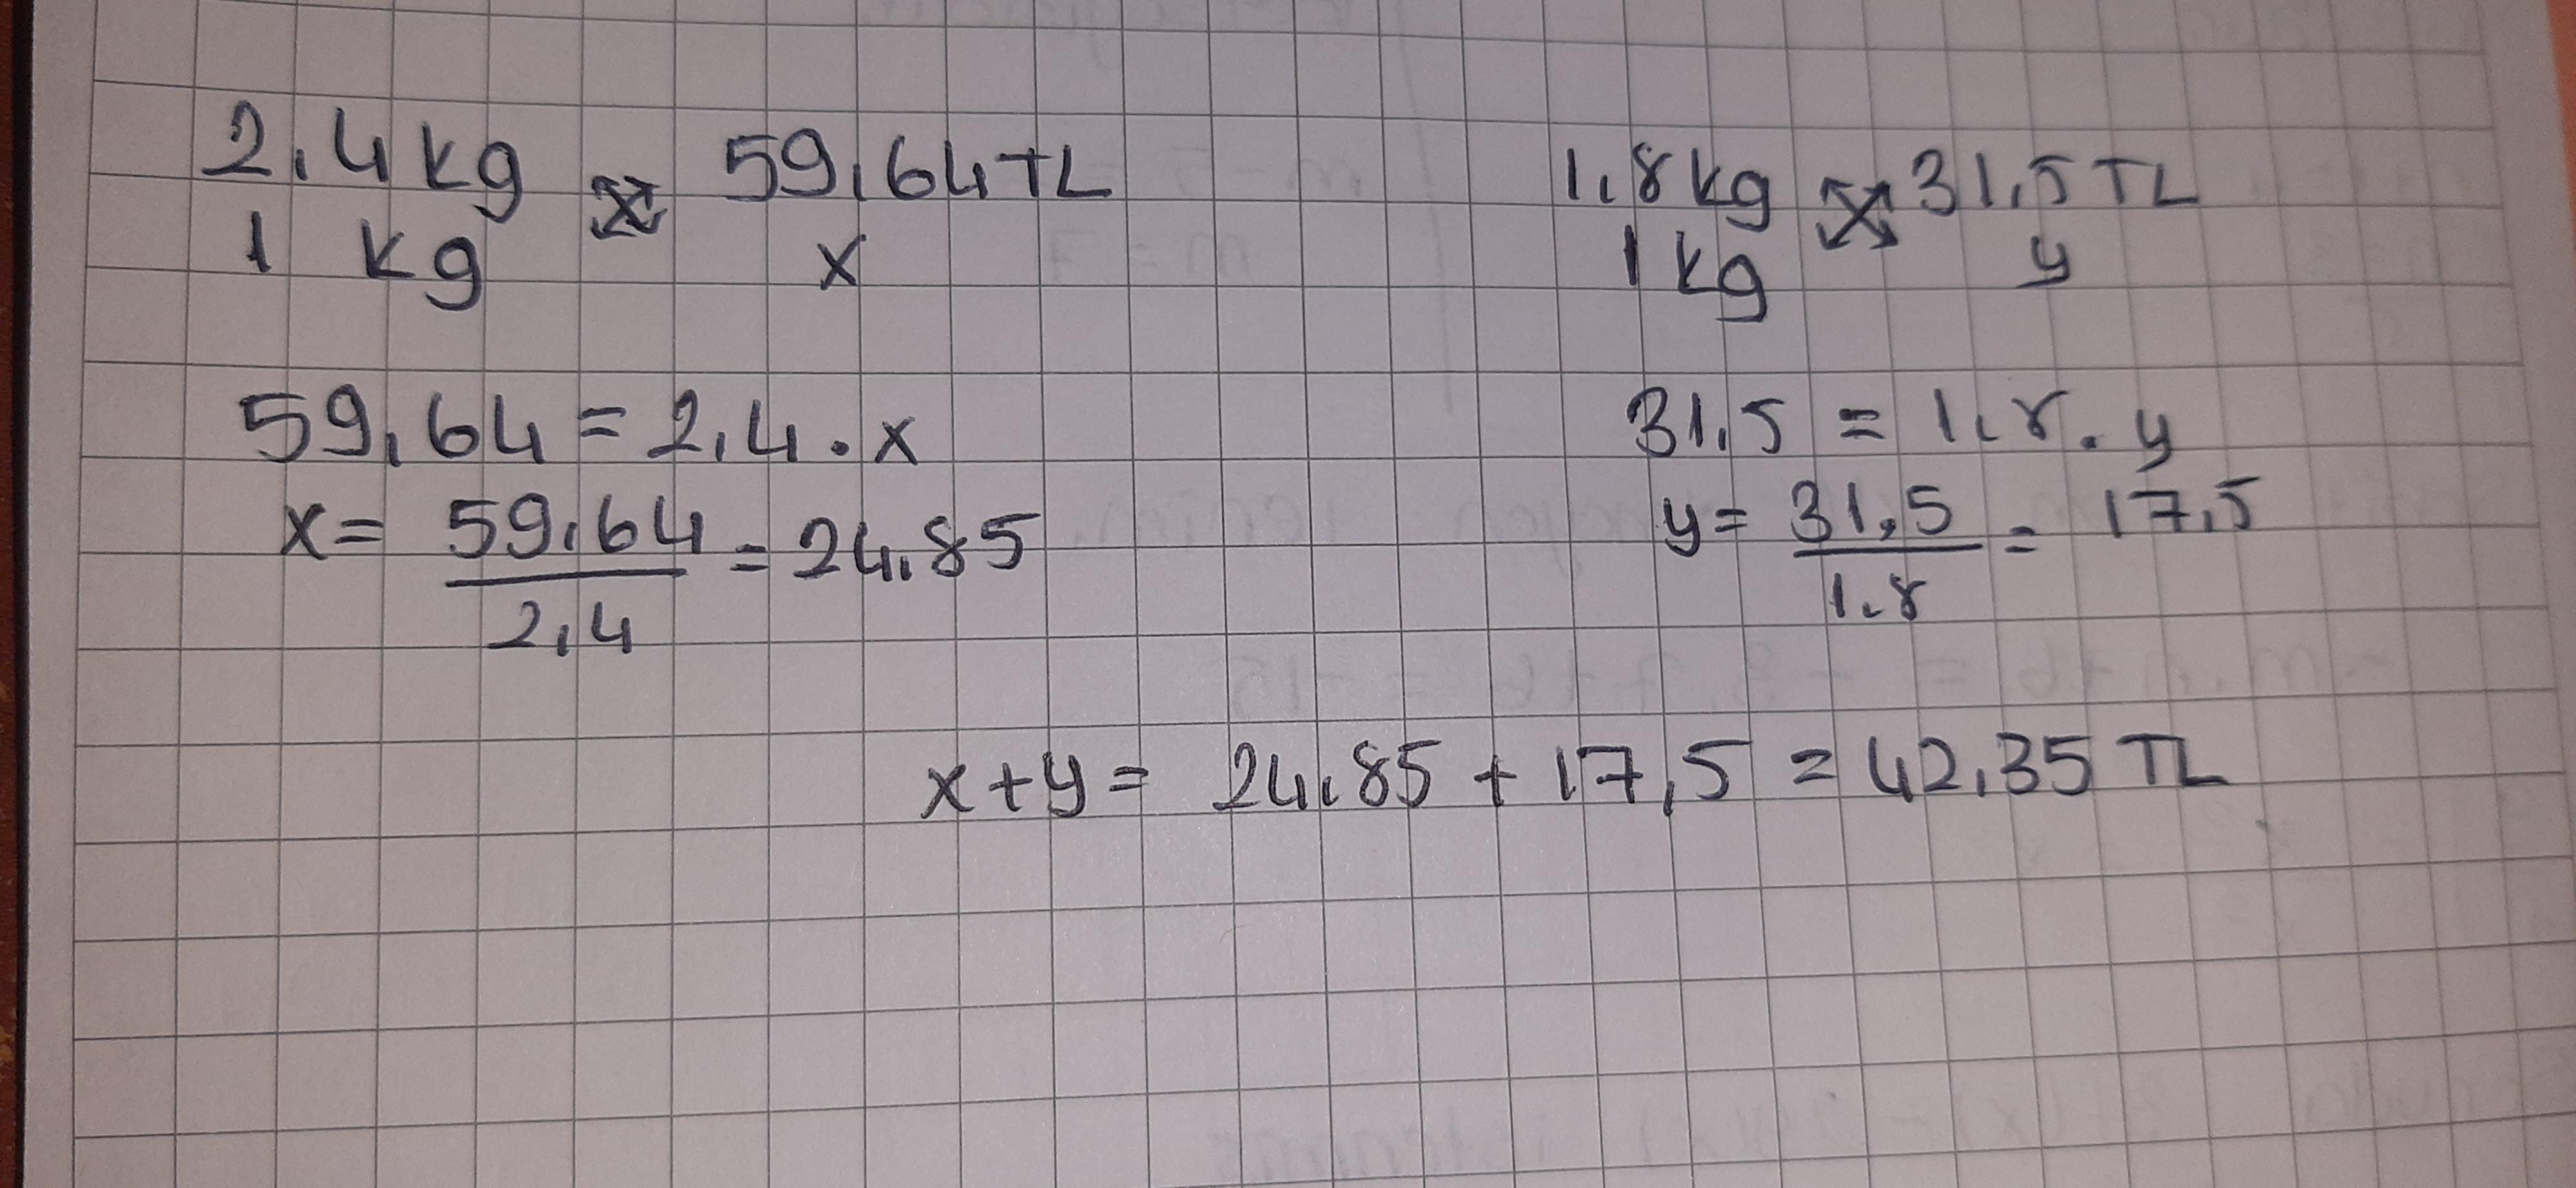 2,4 kg 59,64 TL
1 kg x
59,64 = 2,4 . x
x = 59,64 / 2,4 = 24,85
1,8 kg 31,5 TL
1 kg y
31,5 = 1,8 . y
y = 31,5 / 1,8 = 17,5
x + y = 24,85 + 17,5 = 42,35 TL